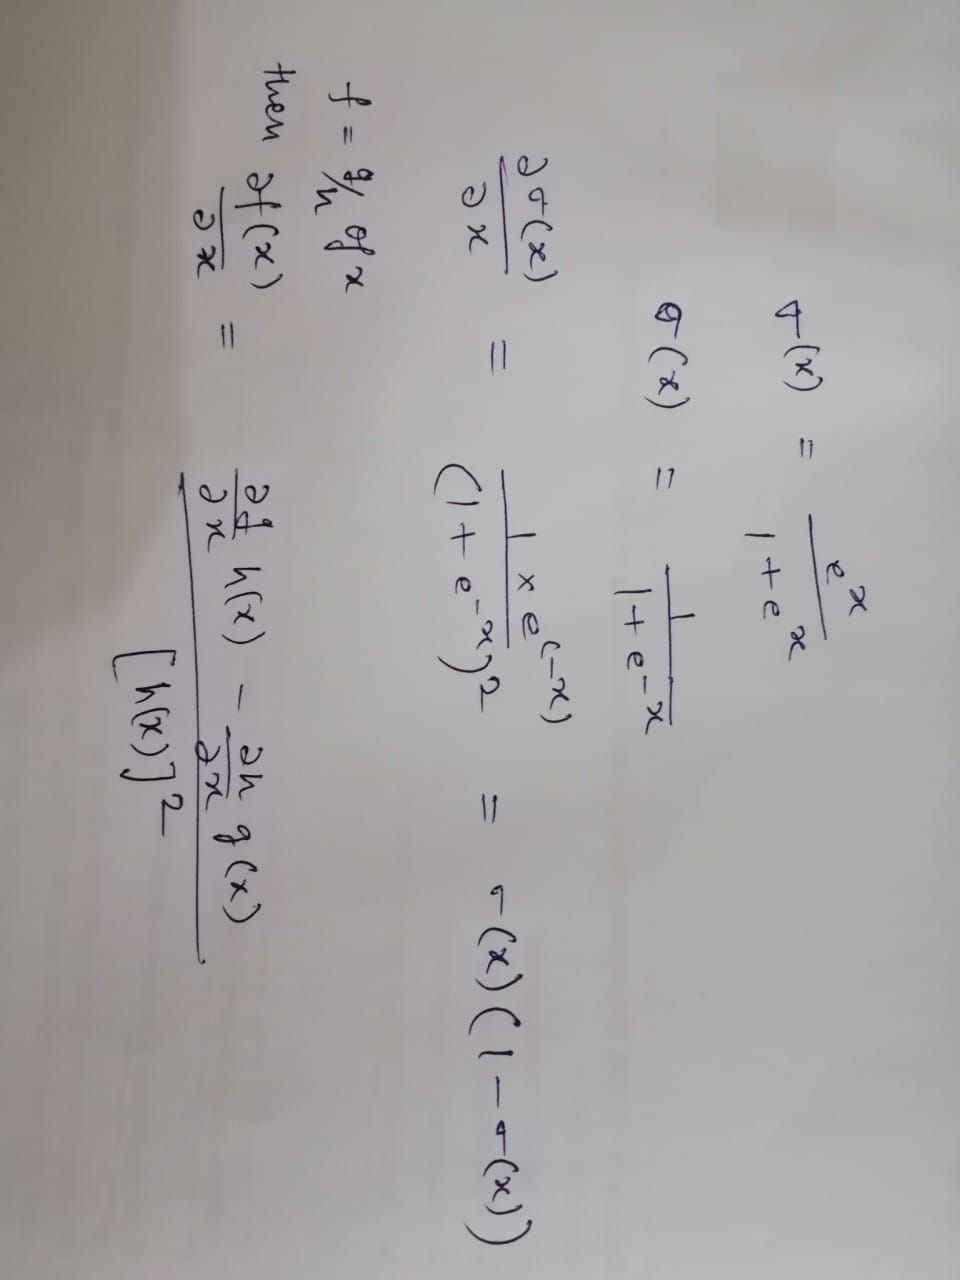 σ(x) = e^x / (1 + e^x)
σ(x) = 1 / (1 + e^-x)
∂σ(x)/∂x = 1 × e^(-x) / (1 + e^-x)^2 = σ(x)(1 - σ(x))
f = g/h of x
then ∂f(x)/∂x = (∂g/∂x h(x) - ∂h/∂x g(x)) / [h(x)]^2